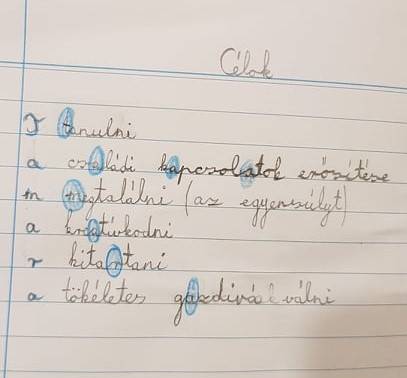 Célok
T tanulni
a családi kapcsolatok erősítése
m megtalálni (az egyensúlyt)
a kreatívkodni
r kitartani
a tökéletes gazdivá válni